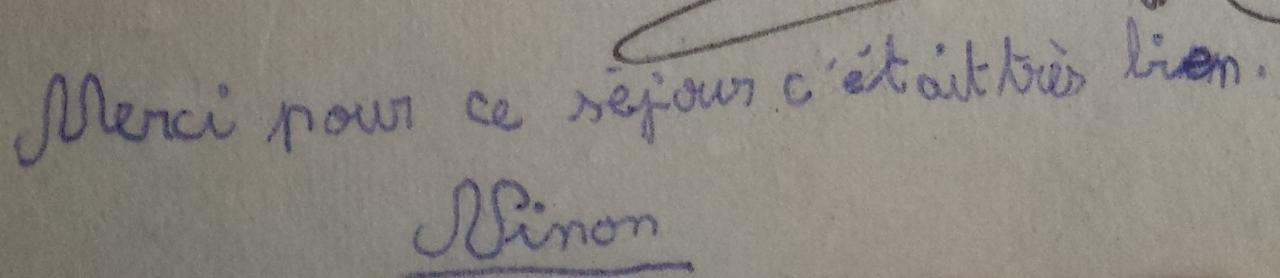 Merci pour ce séjour c'était très bien.
Ninon